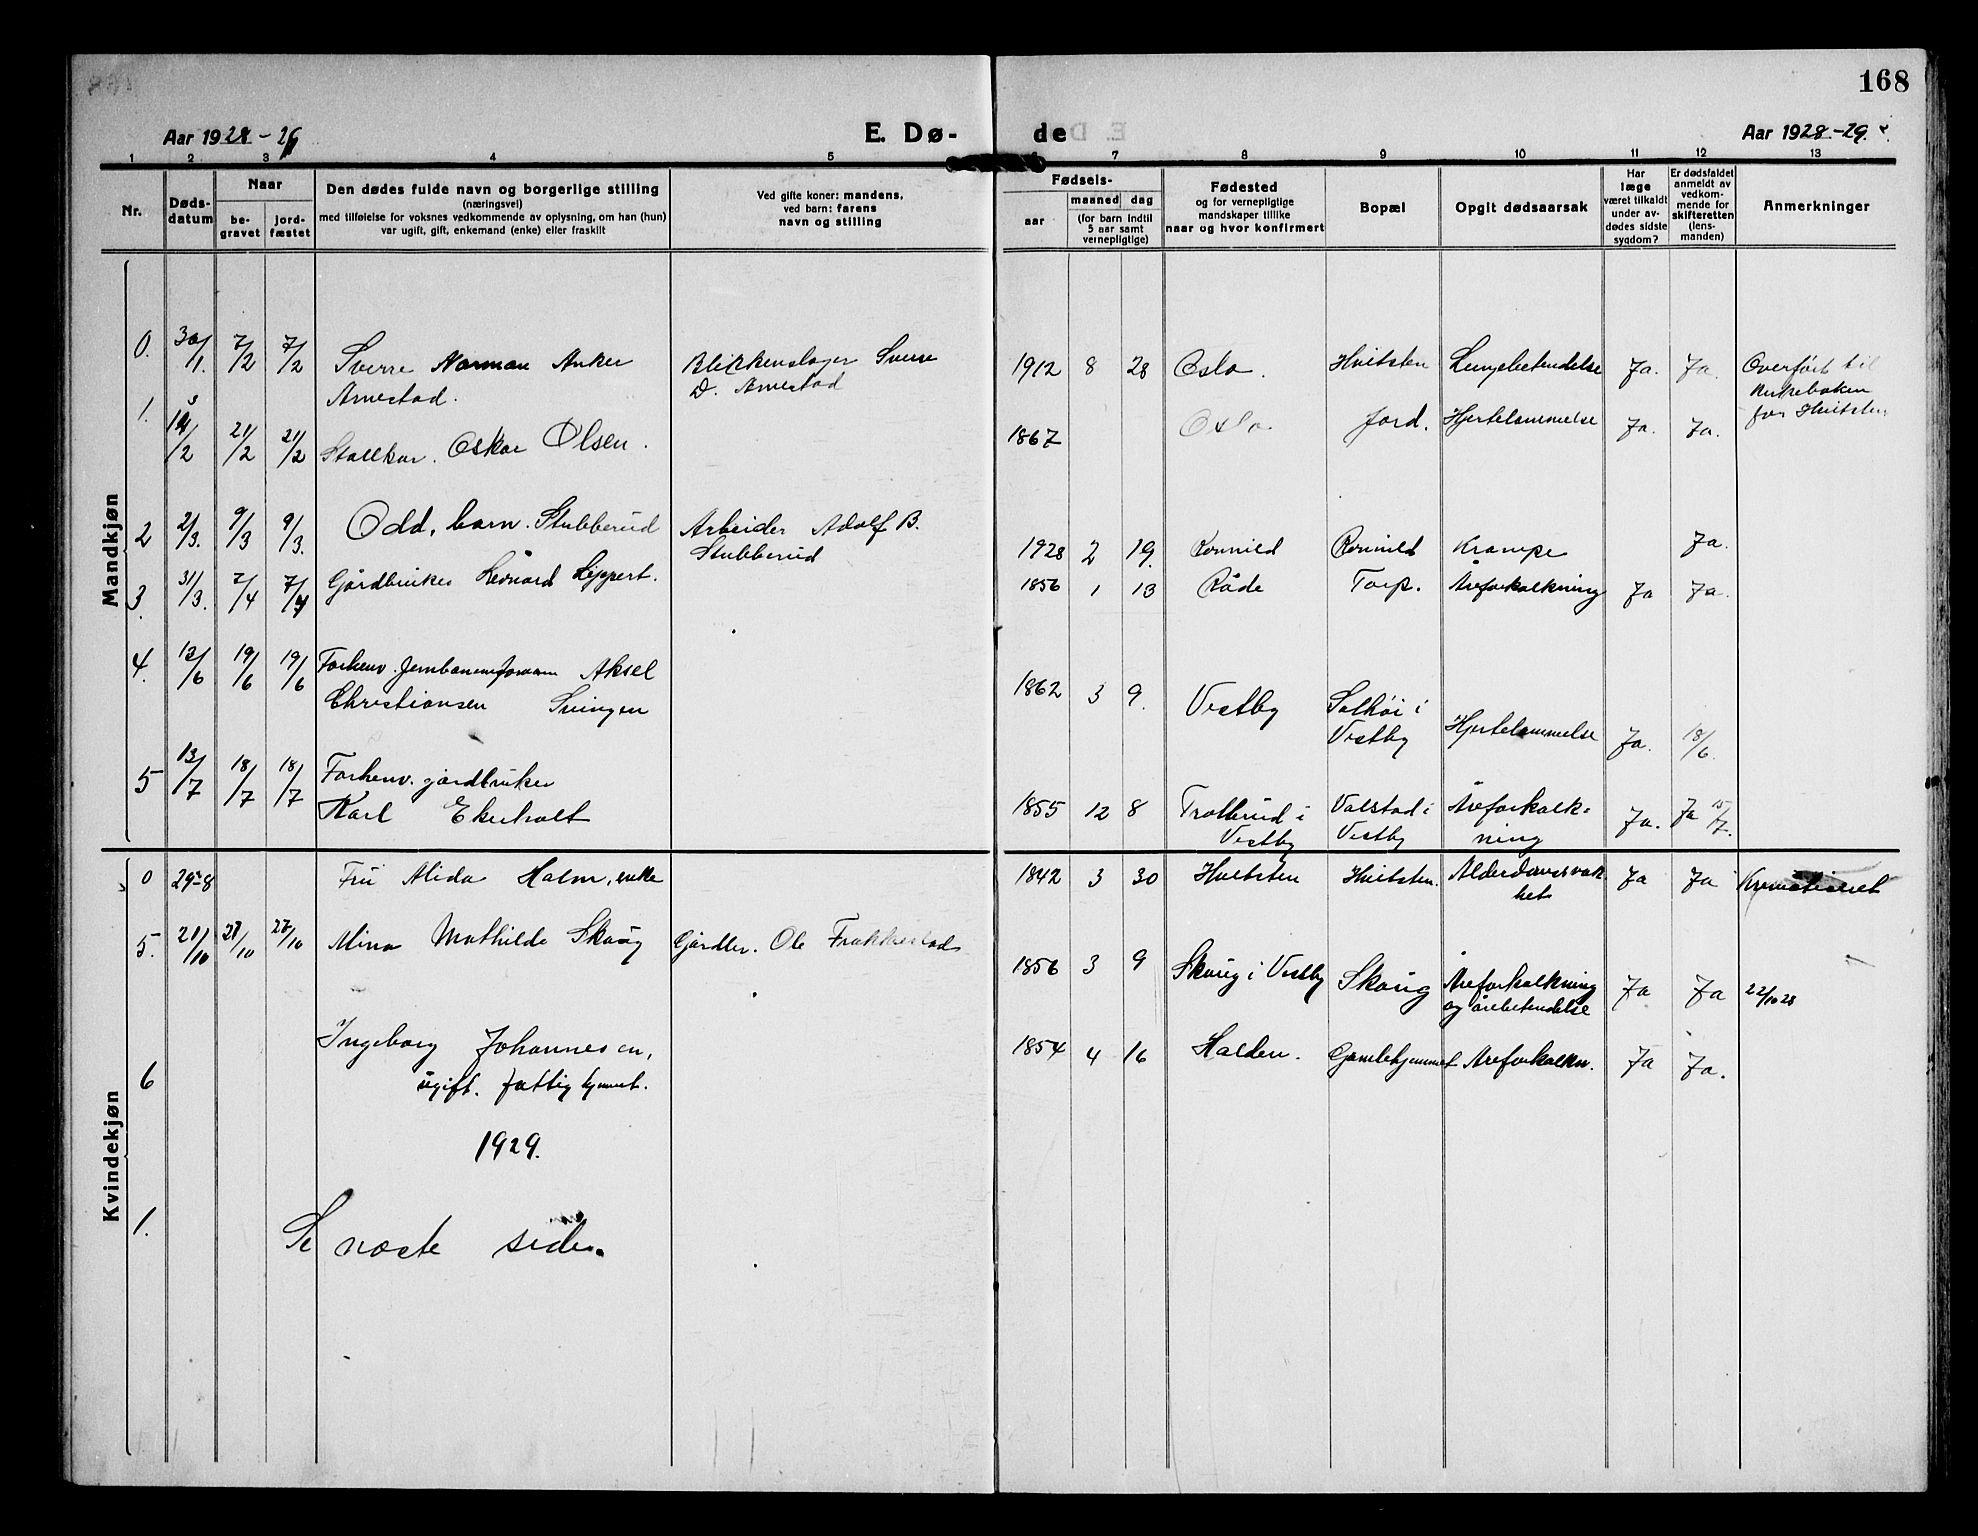 168
Aar 1928 - 29
E. Dø-
de
Aar 1928 - 29.
1 2 3 4 5 7 8 9 10 11 12 13
Nr.
Døds-
datum
Naar
be-
gravet
jord-
fæstet
Den dødes fulde navn og borgerlige stilling
(næringsvei)
med tilføielse for voksnes vedkommende av oplysning, om han (hun)
var ugift, gift, enkemand (enke) eller fraskilt
Ved gifte koner: mandens,
ved barn: farens
navn og stilling
Fødsels-
aar
maaned dag
(for barn indtil
5 aar samt
vernepligtige)
Fødested
og for vernepligtige
mandskaper tillike
naar og hvor konfirmert
Bopæl
Opgit dødsaarsak
Har
læge
været tilkaldt
under av-
dødes sidste
sygdom?
Er dødsfaldet
anmeldt av
vedkom-
mende for
skifteretten
(lens-
manden)
Anmerkninger
Mandkjøn
0. 30/1. 7/2 7/2 Sverre Norman Anker Blikkenslager Sverre 1912 8 28 Oslo. Hvitsten Lungebetendelse Ja. Ja. Overført til
Arnestad. D. Arnestad kirkeboken
for Hvitsten
1. /2 21/2 21/2 Stallkar. Oskar Olsen. 1867 Oslo. Jord. Hjertelammelse Ja. Ja.
2 2/3. 9/3 9/3. Odd, barn. Stubberud Arbeider Adolf B. 1928 2 19. Romnild Romnild Krampe Ja.
Stubberud
3. 31/3. 7/4 7/4 Gårdbruker Leonard Lippert. 1856 1 13 Råde Torp. Åreforkalkning Ja Ja.
4. 13/6 19/6 19/6 Forhenv. Jernbaneformann Aksel 1862 3 9. Vestby Solhøi i
Christiansen Svingen Vestby Hjertelammelse Ja. 18/6.
5 13/7 18/7 18/7 Forhenv. gårdbruker
Karl Ekerholt 1855 12 8 Trollerud i Valstad i Åreforkalk- Ja. Ja 15/7.
Vestby Vestby ning
Kvindekjøn
0 29-8 Fru Alida Holm, enke 1842 3 30 Hvitsten Hvitsten. Alderdomssvak- Ja Ja Kremationet
het
5. 21/10 27/10 27/10 Mina Mathilde Skaug Gårdbr. Ole Frakkestad 1856 3 9 Skaug i Vestby Skaug Åreforkalkning Ja Ja 22/10 28
og årebetendelse
6 Ingeborg Johannesen, 1854 4 16 Halden. Gamlehjemmet Areforkalkn. Ja Ja.
ugift. fattighjemmet.
1929.
1. Se næste side.